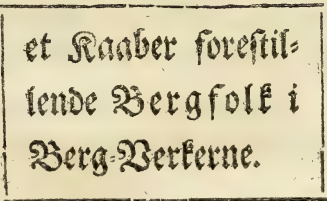 et Kaaber forestil-
lende Bergfolk i
Berg-Verkerne.